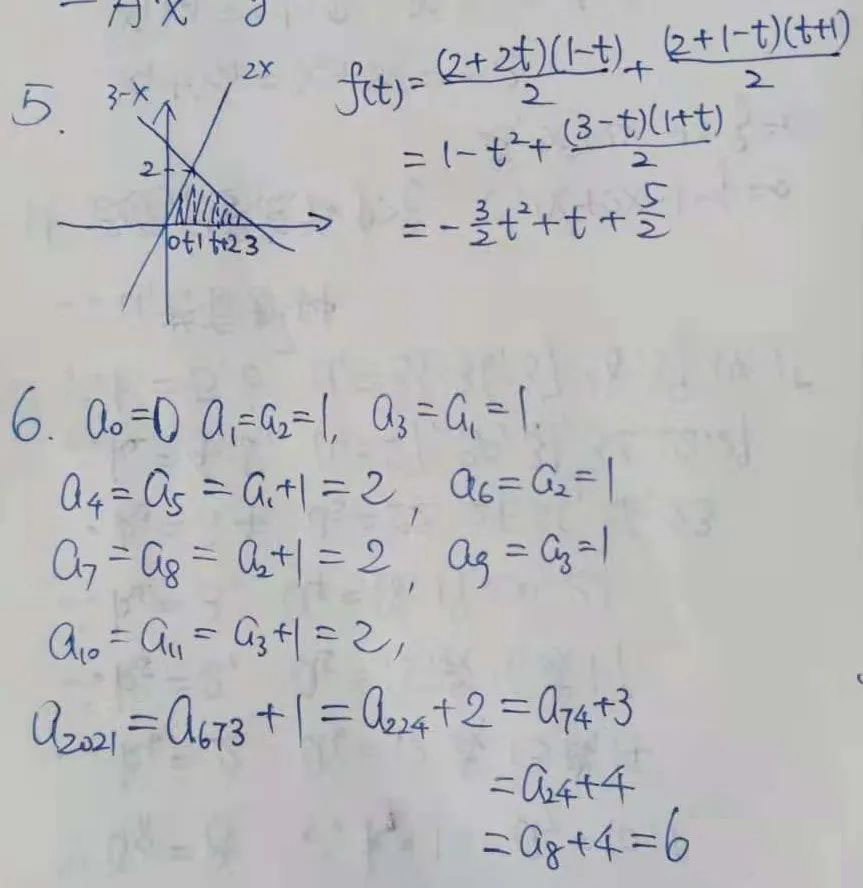 5.
3-x
2x
2
0 t 1 t+2 3
f(t)= (2+2t)(1-t)/2 + (2+1-t)(t+1)/2
= 1-t²+ (3-t)(1+t)/2
= -3/2t²+t+5/2
6. a₀=0 a₁=a₂=1, a₃=a₁=1.
a₄=a₅=a₁+1=2, a₆=a₂=1
a₇=a₈=a₂+1=2, a₉=a₃=1
a₁₀=a₁₁=a₃+1=2,
a₂₀₂₁=a₆₇₃+1=a₂₂₄+2=a₇₄+3
=a₂₄+4
=a₈+4=6